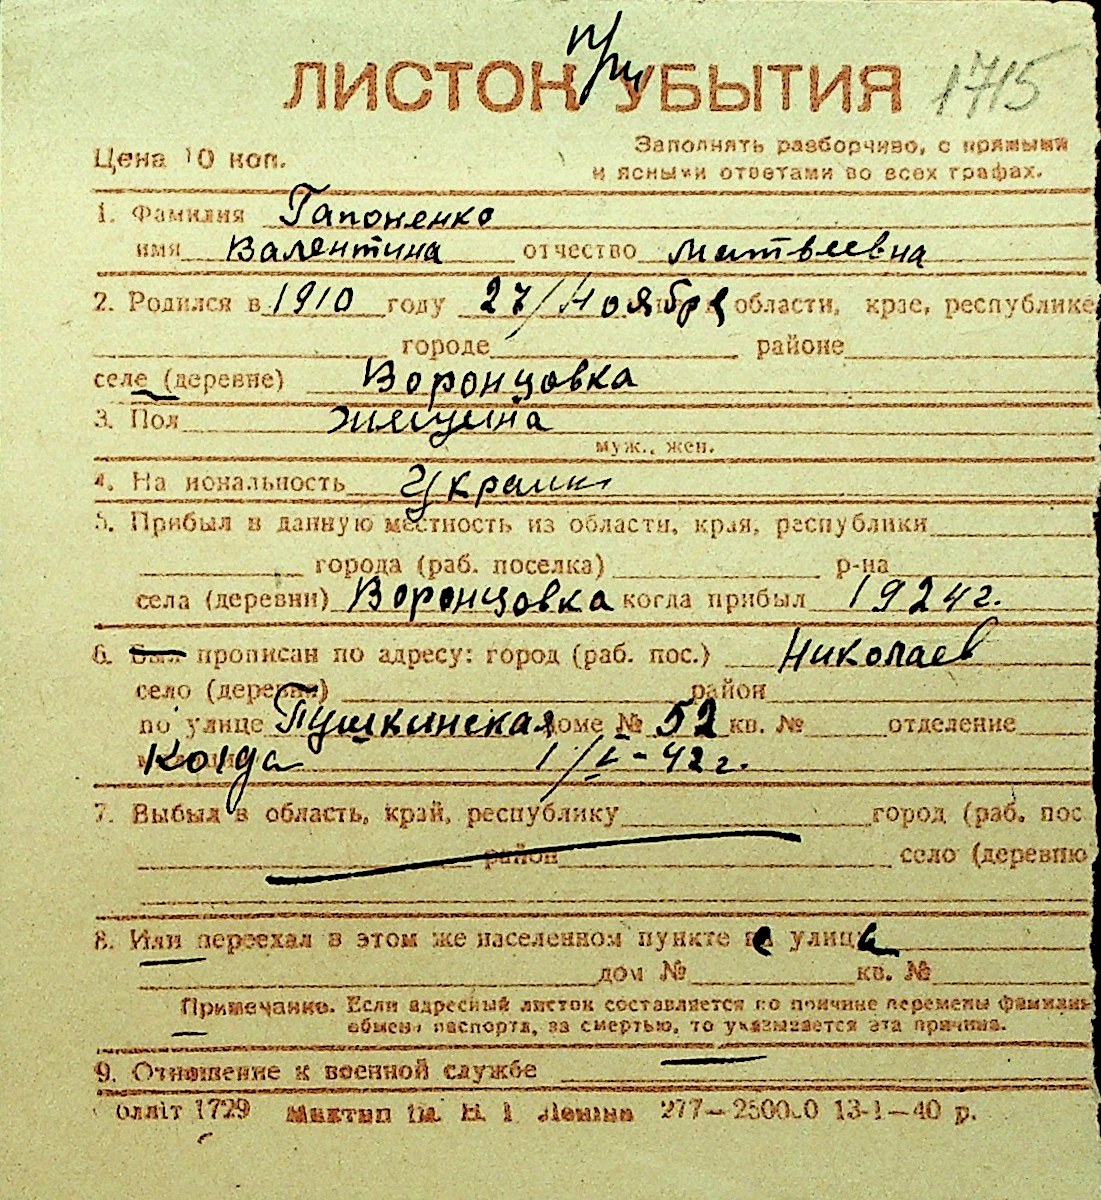 при
ЛИСТОК УБЫТИЯ 1715
Цена 10 коп.
Заполнять разборчиво, с прямыми
и ясными ответами во всех графах.
1. Фамилия Гапоненко
имя Валентина отчество Матвеевна
2. Родился в 1910 году 27/Ноября области, крае, республике
городе районе
селе (деревне) Воронцовка
3. Пол Женщина
муж., жен.
4. Национальность Украин
5. Прибыл в данную местность из области, края, республики
города (раб. поселка) р-на
села (деревни) Воронцовка когда прибыл 1924 г.
6. Был прописан по адресу: город (раб. пос.) Николаев
село (деревня) район
по улице Пушкинская доме № 52 кв. № отделение
Когда 1/I-42 г.
7. Выбыл в область, край, республику город (раб. пос
район село (деревню
8. Или переехал в этом же населенном пункте на улица
дом № кв. №
Примечание. Если адресный листок составляется по причине перемены фамилии
обмена паспорта, за смертью, то указывается эта причина.
9. Отношение к военной службе
блліт 1729 им. В. І. Леніна 277—250000 13-I—40 р.